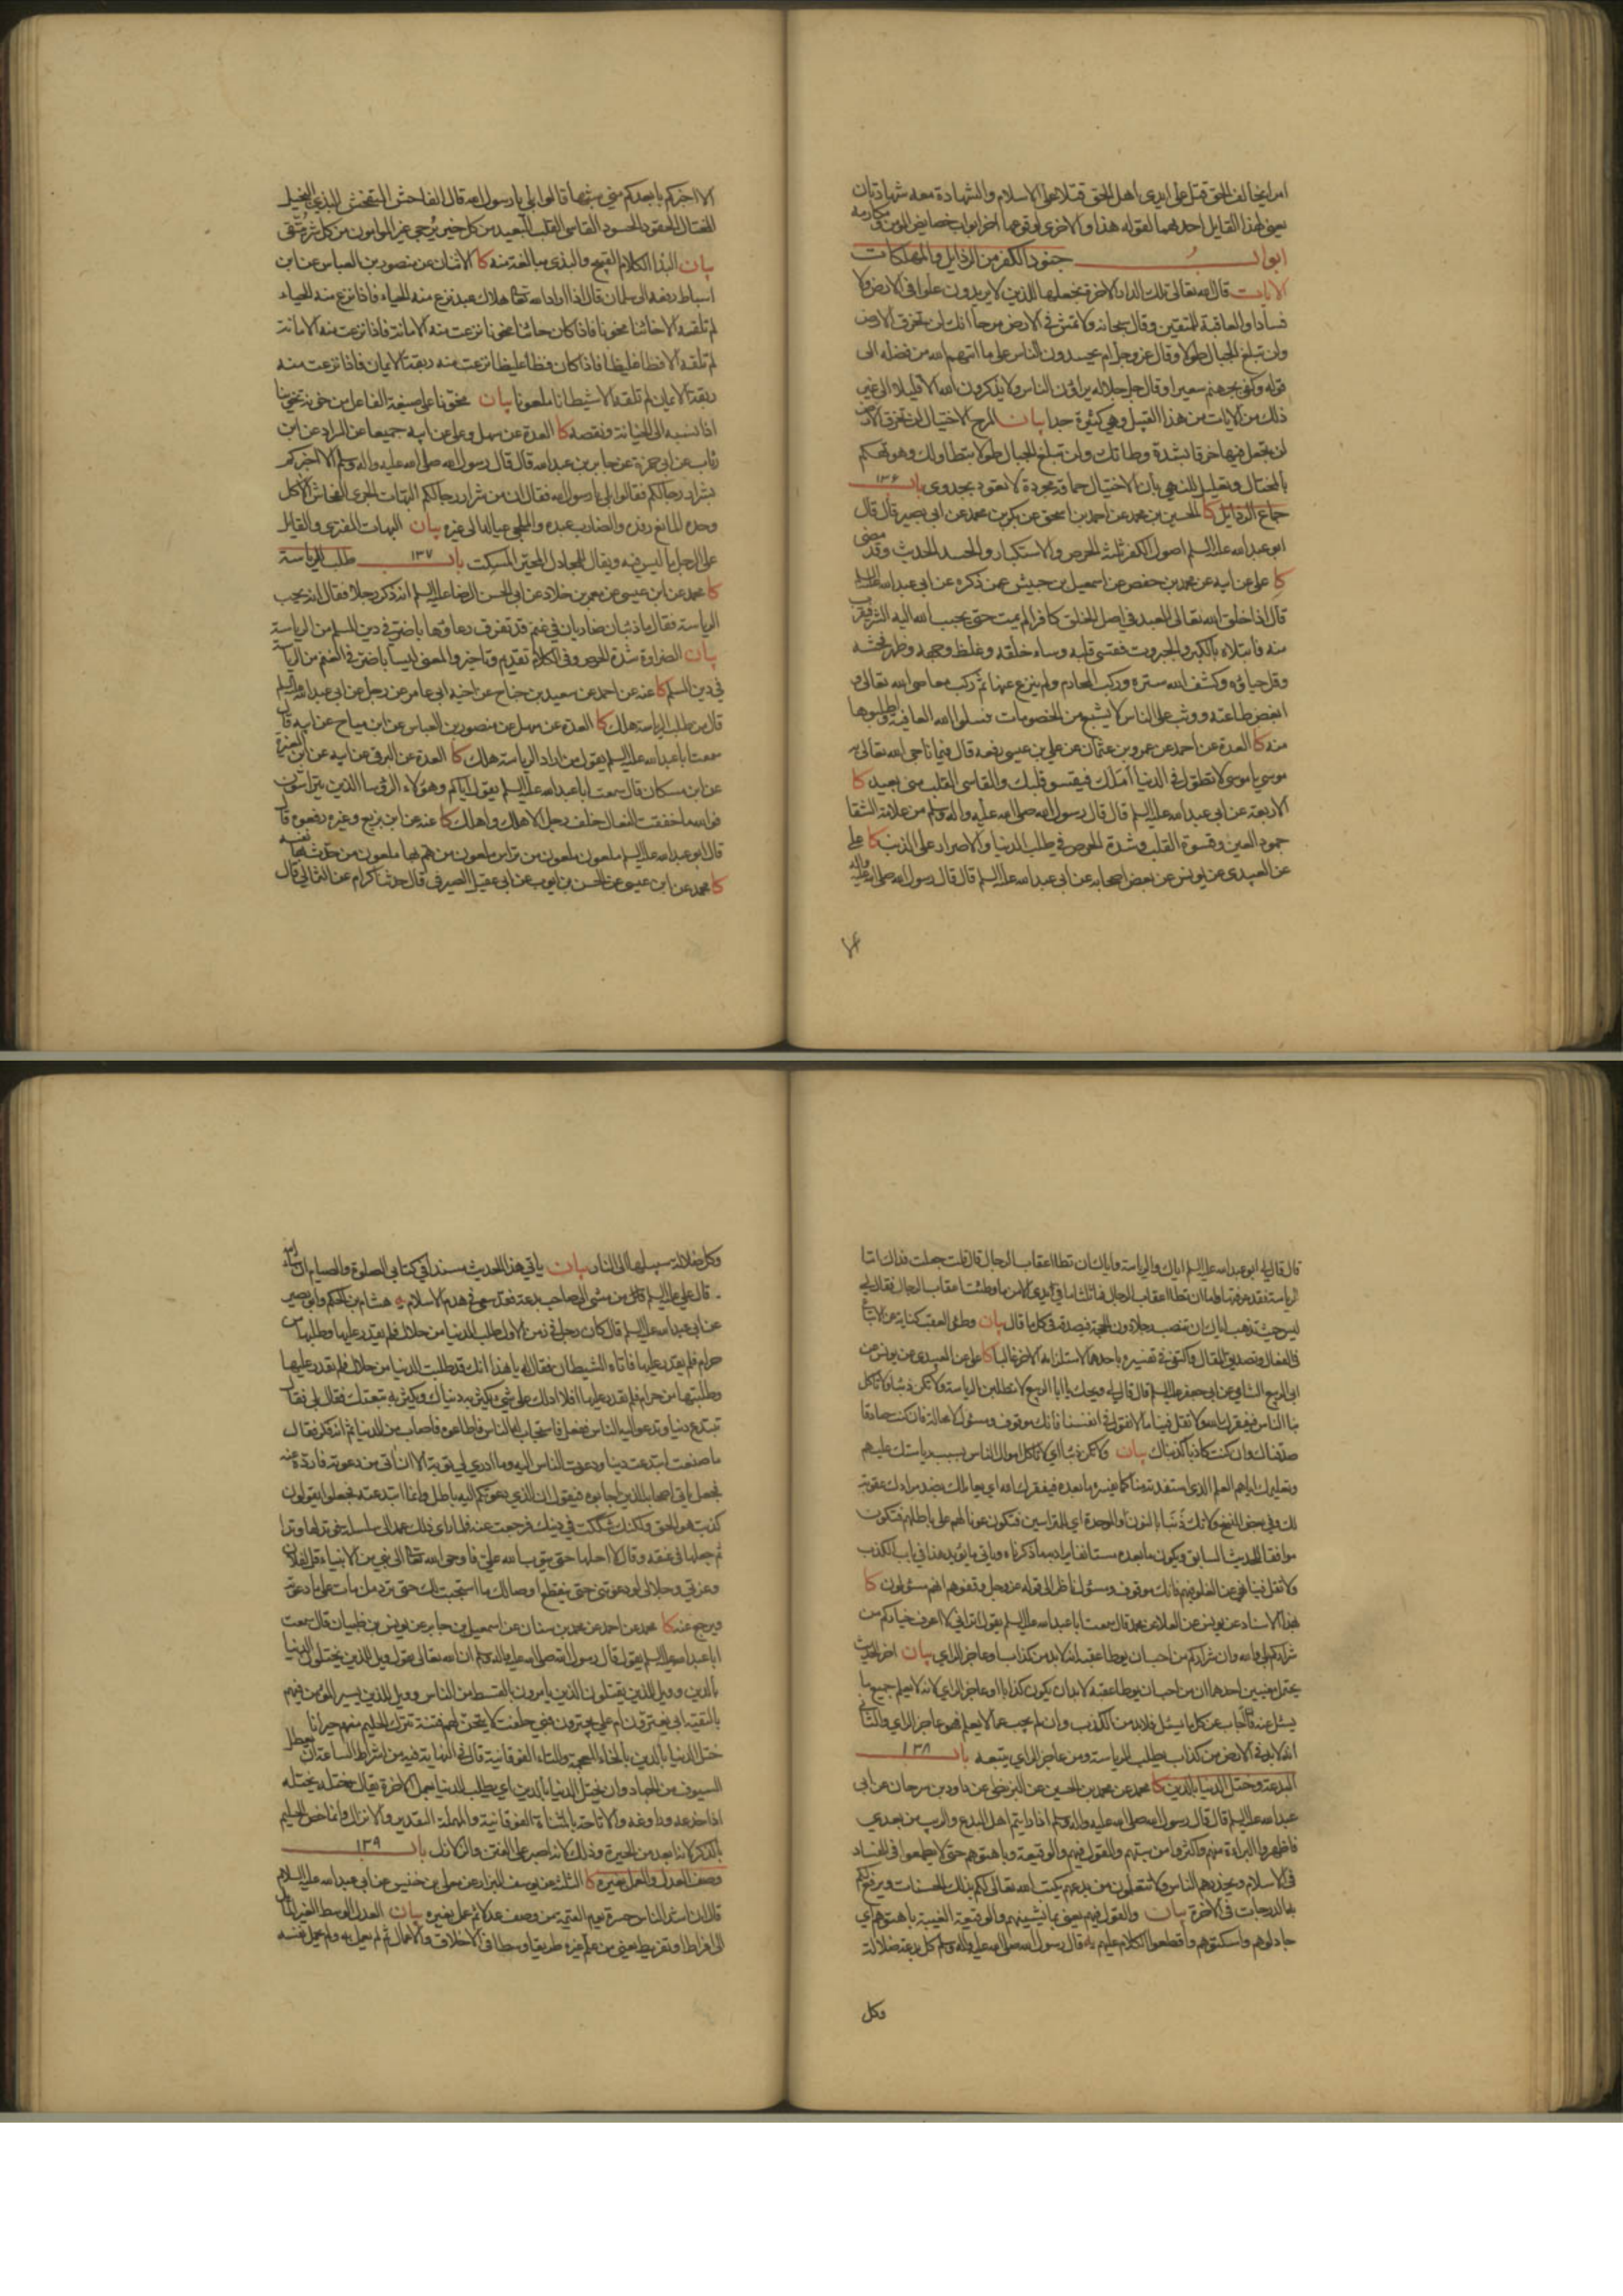 امرا يخالف الحق قتل على ايدى اهل الحق قتلا على الاسلام والشهادة معه شهادتان
يعنى لهذا القايل احديهما لقوله هذا والاخرى لوقوعها اخر ابواب خصايص المومن ومكارمه
ابواب جنود الكفر من الرذايل والمهلكات
الايات قال الله تعالى تلك الدار الاخرة نجعلها للذين لا يريدون علوا فى الارض ولا
فسادا والعاقبة للمتقين وقال سبحانه ولا تمش فى الارض مرحا انك لن تخرق الارض
ولن تبلغ الجبال طولا وقال عز وجل ام يحسدون الناس على ما اتيهم الله من فضله الى
قوله وكفى بجهنم سعيرا وقال جل جلاله يراؤن الناس ولا يذكرون الله الا قليلا الى غير
ذلك من الايات من هذا القبيل وهى كثيرة جدا بيان المرح الاختيال لن تخرق الارض
لن تجعل فيها خرقا بشدة وطاتك ولن تبلغ الجبال طولا بتطاولك وهو تهكم
بالمختال وتعليل للنهى بان الاختيال حماقة مجردة لا تعود بجدوى باب ١٣۶
جماع الرذايل كا الحسين بن محمد عن احمد بن اسحق عن بكر بن محمد عن ابى بصير قال قال
ابو عبد الله عليه السلم اصول الكفر ثلثة الحرص والاستكبار والحسد الحديث وقد مضى
كا على عن ابيه عن محمد بن حفص عن اسمعيل بن دبيش عمن ذكره عن ابى عبد الله عليه السلم
قال اذا خلق الله تعالى العبد فى اصل الخلق كافرا لم يمت حتى يحبب الله اليه الشر فيقرب
منه فابتلاه بالكبر والجبروت فقسى قلبه وساء خلقه وغلظ وجهه وظهر فحشه
وقل حياؤه وكشف الله ستره وركب المحارم ولم ينزع عنها ثم ركب معاصى الله تعالى و
ابغض طاعته ووثب على الناس لا يشبع من الخصومات فسلوا الله العافية واطلبوها
منه كا العدة عن احمد عن عمرو بن عثمان عن على بن عيسى رفعه قال فيما ناجى الله تعالى به
موسى يا موسى لا تطول فى الدنيا املك فيقسو قلبك والقاسى القلب منى بعيد كا
الاربعة عن ابى عبد الله عليه السلم قال قال رسول الله صلى الله عليه واله وسلم من علامة الشقا
جمود العين وقسوة القلب وشدة الحرص فى طلب الدنيا والاصرار على الذنب كا على
عن العبيدى عن يونس عن بعض اصحابه عن ابى عبد الله عليه السلم قال قال رسول الله صلى الله عليه واله
الا اخبركم بابعدكم منى شبها قالوا بلى يا رسول الله قال الفاحش المتفحش البذى البخيل
المختال الحقود الحسود القاسى القلب البعيد من كل خير يرجى غير المامون من كل شر يتقى
بيان البذا الكلام القبيح والبذى مبالغة منه كا الاثنان عن منصور بن العباس عن ابن
اسباط رفعه الى سلمان قال اذا اراد الله تعالى هلاك عبد نزع منه الحياء فاذا نزع منه الحياء
لم تلقه الا خائنا مخونا فاذا كان خائنا مخونا نزعت منه الامانة فاذا نزعت منه الامانة
لم تلقه الا فظا غليظا فاذا كان فظا غليظا نزعت منه ربقة الايمان فاذا نزعت منه
ربقة الايمان لم تلقه الا شيطانا ملعونا بيان مخونا على صيغة الفاعل من خونه تخوينا
اذا نسبه الى الخيانة ونقصه كا العدة عن سهل وعلى عن ابيه جميعا عن السراد عن ابن
رئاب عن ابى حمزة عن جابر بن عبد الله قال قال رسول الله صلى الله عليه واله وسلم الا اخبركم
بشرار رجالكم فقالوا بلى يا رسول الله فقال ان من شرار رجالكم البهات الجرى الفحاش الاكل
وحده المانع رفده والضارب عبده والملجى عياله الى غيره بيان البهات المفترى والقايل
على الرجل ما ليس فيه ويقال للمجادل المحير المسكت باب ١٣٧ طلب الرياسة
كا محمد عن ابن عيسى عن معمر بن خلاد عن ابى الحسن الرضا عليه السلم انه ذكر رجلا فقال انه يحب
الرياسة فقال ما ذئبان ضاريان فى غنم قد تفرق رعاؤها باضر فى دين المسلم من الرياسة
بيان الضراوة شدة الحرص وفى الكلام تقديم وتاخير والمعنى ليسا باضر فى الغنم من الرياسة
فى دين المسلم كا عنه عن احمد عن سعيد بن جناح عن اخيه ابى عامر عن رجل عن ابى عبد الله عليه السلم
قال من طلب الرياسة هلك كا العدة عن سهل عن منصور بن العباس عن ابن مياح عن ابيه قال
سمعت ابا عبد الله عليه السلم يقول من اراد الرياسة هلك كا العدة عن البرقى عن ابيه عن ابن المغيرة
عن ابن مسكان قال سمعت ابا عبد الله عليه السلم يقول اياكم وهؤلاء الرؤسا الذين يتراسون
فوالله ما خفقت النعال خلف رجل الا هلك واهلك كا عنه عن ابن بزيع وغيره رفعوه قال
قال ابو عبد الله عليه السلم ملعون من تراس ملعون من هم بها ملعون من حدث بها نفسه
كا محمد عن ابن عيسى عن الحسن بن ايوب عن ابى عقيل الصيرفى قال حدثنا كرام عن الثمالى قال
قال قال لى ابو عبد الله عليه السلم اياك والرياسة واياك ان تطا اعقاب الرجال قال قلت جعلت فداك اما
الرياسة فقد عرفتها واما ان تطا اعقاب الرجال فما ثلثا ما فى يدى الا مما وطئت اعقاب الرجال فقال لى
ليس حيث تذهب اياك ان تنصب رجلا دون الحجة فتصدقه فى كل ما قال بيان وطئ العقب كناية عن الاتباع
فى الفعال وتصديق المقال واكتفى فى تفسيره باحدهما لاستلزامه الاخر غالبا كا على عن العبيدى عن يونس عن
ابى الربيع الشامى عن ابى جعفر عليه السلم قال قال لى ويحك يا ابا الربيع لا تطلبن الرياسة ولا تكن ذئبا ولا تاكل
بنا الناس فيفقرك الله ولا تقل فينا ما لا نقول فى انفسنا فانك موقوف ومسؤل لا محالة فان كنت صادقا
صدقناك وان كنت كاذبا كذبناك بيان ولا تكن ذئبا اى لا تاكل اموال الناس بسبب رياستك عليهم
وتعليمك اياهم العلم الذى استفدته منا كما يفسره ما بعده فيفقرك الله اى يعاملك بضد مرادك عقوبة
لك وفى بعض النسخ ولا تك ذنبا بالنون والموحدة اى للمتراسين فتكون عونا لهم على باطلهم فتكون
موافقا للحديث السابق ويكون ما بعده مستانفا يراد به ما ذكرناه وياتى ما يؤيد هذا فى باب الكذب
ولا تقل فينا نهى عن الغلو فيهم فانك موقوف ومسؤل ناظر الى قوله عز وجل وقفوهم انهم مسئولون كا
بهذا الاسناد عن يونس عن العلا عن محمد قال سمعت ابا عبد الله عليه السلم يقول اترانى لا اعرف خياركم من
شراركم بلى والله وان شراركم من احب ان يوطا عقبه انه لا بد من كذاب او عاجز الراى بيان اخر الحديث
يحتمل معنيين احدهما ان من احب ان يوطا عقبه لا بد ان يكون كذابا او عاجز الراى لانه لا يعلم جميع ما
يسئل عنه فان اجاب عن كل ما يسئل فلا بد من الكذب وان لم يجب عما لا يعلم فهو عاجز الراى والثانى
انه لا بد فى الارض من كذاب يطلب الرياسة ومن عاجز الراى يتبعه باب ١٣٨
البدعة وختل الدنيا بالدين كا محمد عن محمد بن الحسين عن البزنطى عن داود بن سرحان عن ابى
عبد الله عليه السلم قال قال رسول الله صلى الله عليه واله وسلم اذا رايتم اهل البدع والريب من بعدى
فاظهروا البراءة منهم واكثروا من سبهم والقول فيهم والوقيعة وباهتوهم حتى لا يطمعوا فى الفساد
فى الاسلام ويحذرهم الناس ولا يتعلمون من بدعهم يكتب الله تعالى لكم بذلك الحسنات ويرفع لكم
به الدرجات فى الاخرة بيان والقول فيهم يعنى بما يشينهم والوقيعة الغيبة باهتوهم اى
جادلوهم واسكتوهم واقطعوا الكلام عليهم يه قال رسول الله صلى الله عليه واله وسلم كل بدعة ضلالة
وكل
وكل ضلالة سبيلها الى النار بيان ياتى هذا الحديث مسندا فى كتابى الصلوة والصيام ان شاء الله
قال على عليه السلم قال من مشى الى صاحب بدعة فقد سعى فى هدم الاسلام يه هشام بن الحكم وابو بصير
عن ابى عبد الله عليه السلم قال كان رجل فى زمن الاول طلب الدنيا من حلال فلم يقدر عليها وطلبها من
حرام فلم يقدر عليها فاتاه الشيطان فقال له يا هذا انك قد طلبت الدنيا من حلال فلم تقدر عليها
وطلبتها من حرام فلم تقدر عليها افلا ادلك على شئ يكثر به دنياك ويكثر به تبعتك فقال بلى فقال
تبتدع دينا وتدعو اليه الناس ففعل فاستجاب له الناس فاطاعوه فاصاب من الدنيا ثم انه فكر فقال
ما صنعت ابتدعت دينا ودعوت الناس اليه وما ادرى لى توبة الا ان اتى من دعوته فارده عنه
فجعل ياتى اصحابه الذين اجابوه فيقول ان الذى دعوتكم اليه باطل وانما ابتدعته فجعلوا يقولون
كذبت هو الحق ولكنك شككت فى دينك فرجعت عنه فلما راى ذلك عمد الى سلسلة فوتد لها وتدا
ثم جعلها فى عنقه وقال لا احلها حتى يتوب الله على فاوحى الله تعالى الى نبى من الانبياء قل لفلان
وعزتى وجلالى لو دعوتنى حتى ينقطع اوصالك ما استجبت لك حتى ترد من مات على ما دعوته
فيرجع عنه كا محمد عن احمد عن محمد بن سنان عن اسمعيل بن جابر عن يونس بن ظبيان قال سمعت
ابا عبد الله عليه السلم يقول قال رسول الله صلى الله عليه واله وسلم ان الله تعالى يقول ويل للذين يختلون الدنيا
بالدين وويل للذين يقتلون الذين يامرون بالقسط من الناس وويل للذين يسير المؤمن فيهم
بالتقية ابى يغترون ام على يجترون فبى حلفت لاتيحن لهم فتنة تترك الحليم منهم حيرانا
ختل الدنيا بالدين بالخاء المعجمة والتاء الفوقانية قال فى النهاية فيه من اشراط الساعة ان يعطل
السيوف من الجهاد وان يختل الدنيا بالدين اى يطلب الدنيا بعمل الاخرة يقال ختله يختله
اذا خدعه وراوغه والاتاحة بالمثناة الفوقانية والمهملة التقدير والانزال وانما خص الحليم
بالذكر لانه ابعد من الحيرة وذلك لانه اصبر على الفتن والزلازل باب ١٣٩
وصف العدل والعمل بغيره كا الثلثة عن يوسف البزاز عن معلى بن خنيس عن ابى عبد الله عليه السلام
قال ان اشد الناس حسرة يوم القيمة من وصف عدلا ثم عمل بغيره بيان العدل الوسط الغير المائل
الى افراط او تفريط يعنى من علم غيره طريقا وسطا فى الاخلاق والاعمال ثم لم يعمل به ولم يحمل نفسه